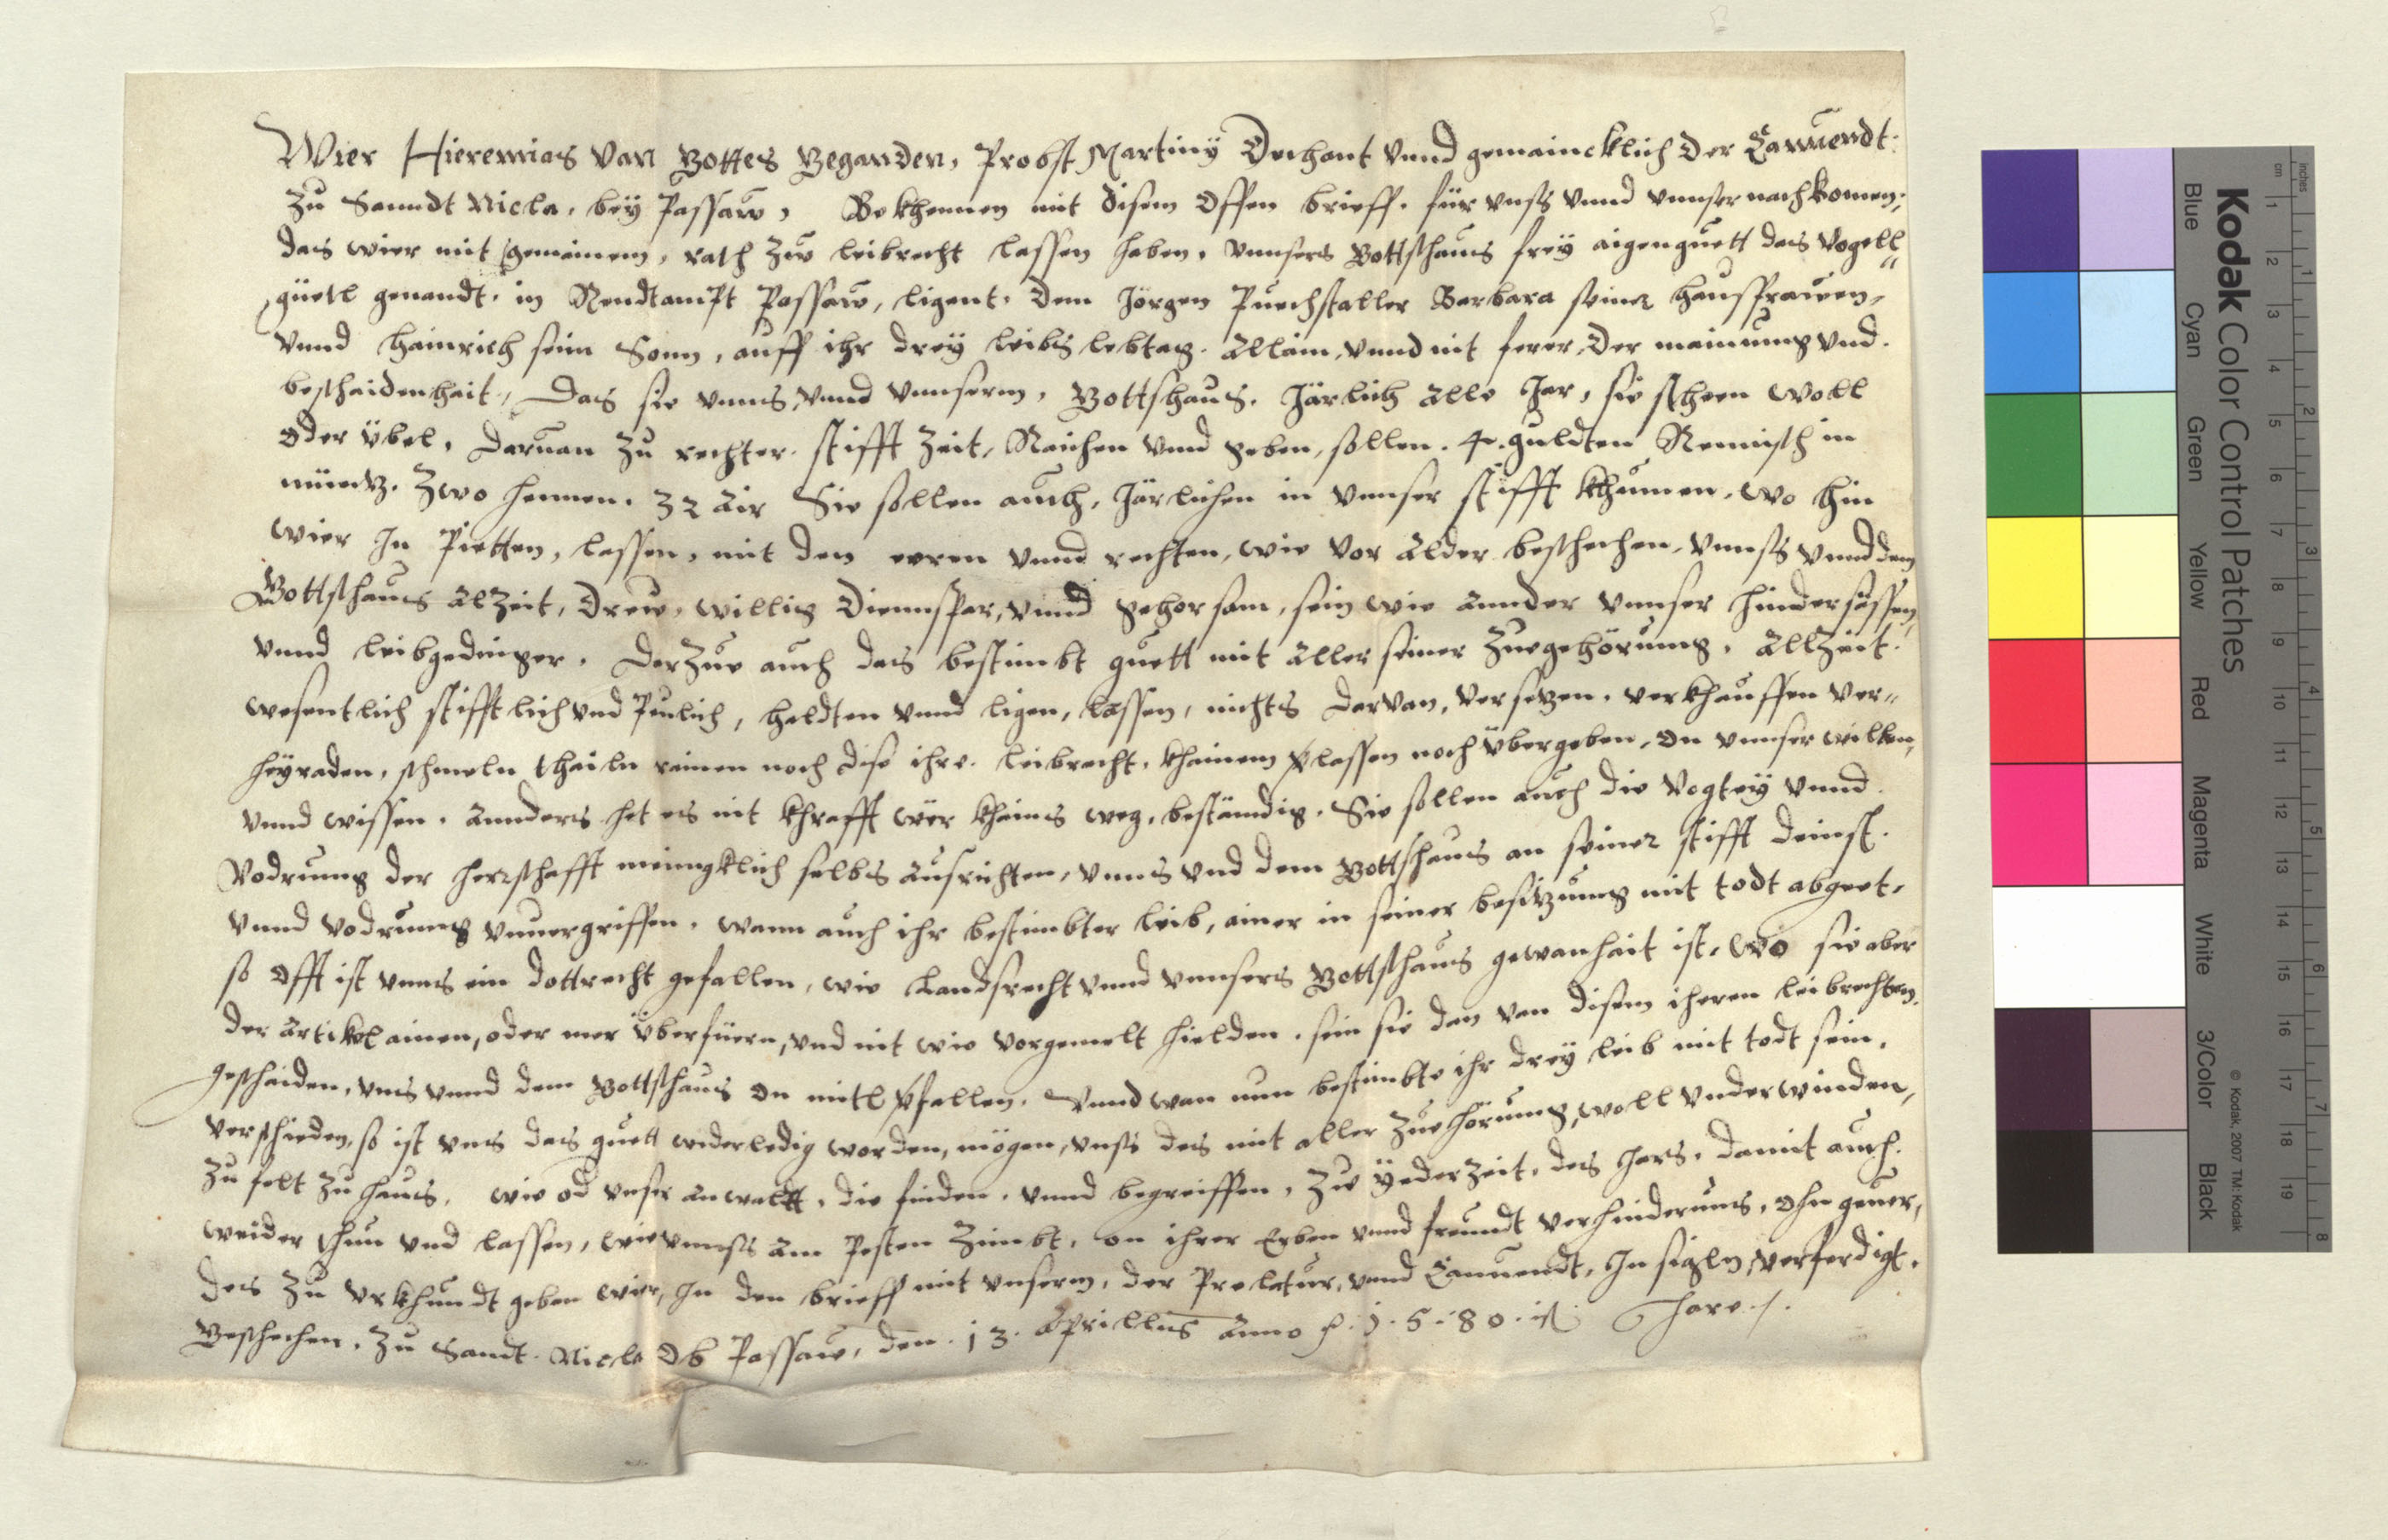 Wier Hieremias van Gottes Geganden, Probst Martiny Dechant vnnd gemaincklich der Conuendt
zu Sanndt Nicla, bey Passaw, Bekhennen mit disem offen brieff, für vnnß vnnd vnnser nachkomen,
das wier mit gemainem, rath zw leibrecht lassen haben, vnnsers Gottßhaus frey aigenguett das Vogell"
güetl genandt, in Rendtampt Passaw, ligent, dem Jörgen Puechstaller Barbara seiner hausfrawen,
vnnd hainrich seim Sonn, auff ihr drey leibs lebtag. Allain, vnnd nit ferer, Der mainung vnd
beschaidenhait, Das sie vnns, vnnd vnnserm, Gottshaus, Järlich alle Jar, sie stheen woll
oder übel, daruan zu rechter stifft zeit, Raichen vnnd geben, sollen. 4. guldten Reinisch in
müntz. Zwo hennen. 32 air Sie sollen auch, Järlichen in vnnser stifft khumen, wo hin
wier In Pietten, lassen, mit den eeren vnnd rechten, wie vor alder beschechen, vnnß vnnd dem
Gottßhaus alzeit, drew, willig diennspar, vnnd gehorsam, sein wie annder vnnser hindersässen,
vnnd leibgedinger. Darzue auch das bestimbt guett mit aller seiner zuegehörung, allzeit
wesentlich stifftlich vnd Peulich, haldten vnnd ligen, lassen, nichts darvan, versetzen, verkhauffen ver"
heyraden, schmeln thailn rainen noch dise ihre leibrecht, khainem lassen noch übergeben, on vnnser willen,
vnnd wissen. annders het es nit khrafft wer khains weg, beständig. Sie sollen auch die Vogtey vnnd
Vodrung der herrschafft meinngklich selbs ausrichten, vnns vnd dem Gottshaus an seiner stifft deinst
vnnd vodrung vnuergriffen. wann auch ihr bestimbter leib, ainer in seiner besitzung mit todt abgeet,
so offt ist vnns ein dottrecht gefallen, wie Landsrecht vnnd vnnsers Gottßhaus gewanhait ist, wo sie aber
der artikel ainen, oder mer überfüern, vnd nit wie vorgemelt hielden. sein sie dan van disem iheren leibrechten
geschaiden, vns vnnd dem Gottßhaus on mitl fallen. Vnnd wan nun bestimbte ihr drey leib mit todt sein,
verschieden, so ist vns das guett widerledig worden, mögen, vnß des mit aller zuehörung, woll vnderwinden,
zu felt zu haus, wie od vnser anwaltt, die finden, vnnd begreiffen, zw yeder zeit, des Jars, damit auch
weider thun vnd lassen, wie vnnß am Pesten zimbt, on ihrer Erben vnnd freundt verhinderung, ohn geuer,
des zu vrkhundt geben wier, In den brieff mit vnserm, der Prelatur, vnnd Conuendt, In sigln, verferdigt,
Geschechen, zu Sandt Nicla ob Passaw, den 13. Aprillus Anno 1.5.80.ist Jare
Kodak Color Control Patches
Blue Cyan Green Yellow Red Magenta White 3/Color Black
© Kodak, 2007 TM: Kodak
inches 1 2 3 4 5 6 7 8
cm 1 2 3 4 5 6 7 8 9 10 11 12 13 14 15 16 17 18 19